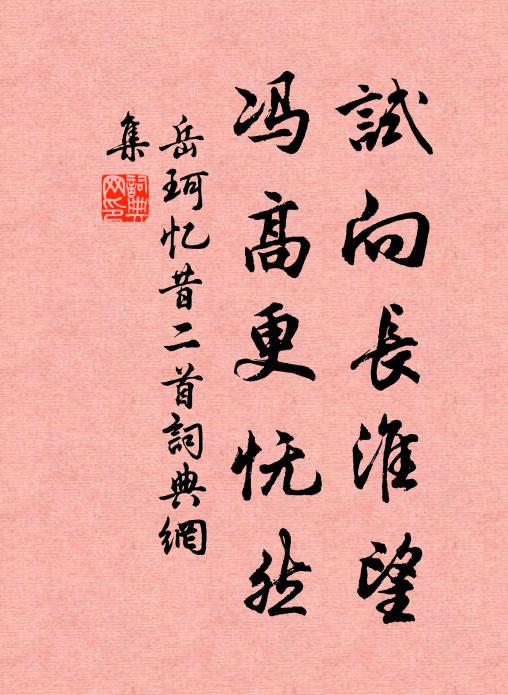 試向長淮望
冯高更怃然
岳珂忆昔二首詞典網
集
詞典网印